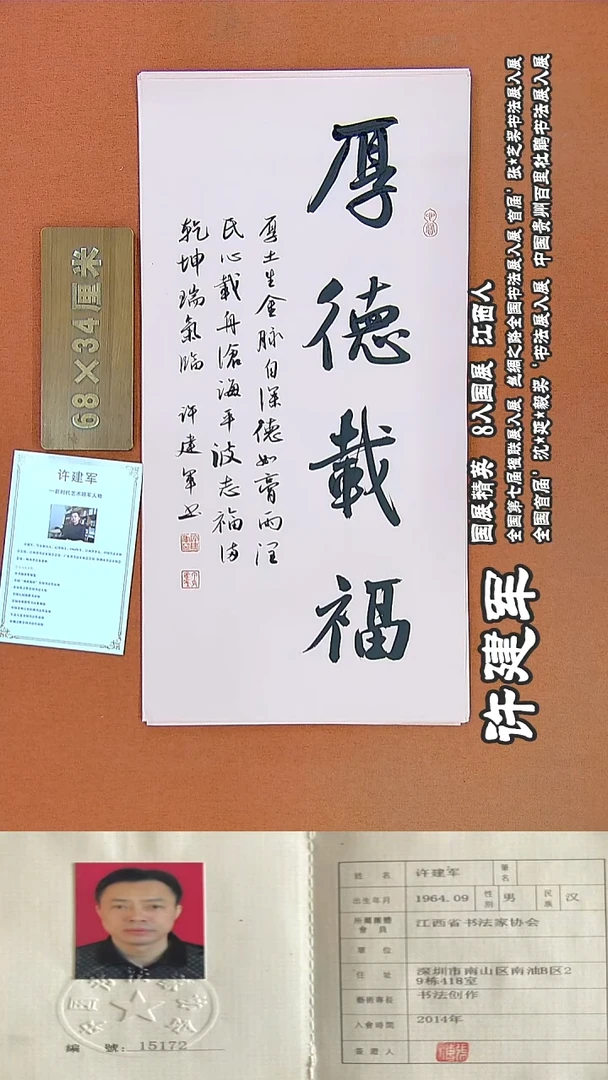 厚德載福
厚土生金脉自深德如膏雨润
民心載舟滄海平波志福海
乾坤瑞氣臨 许建军书
68×34厘米
许建军
国展精英 8入国展 江西人
全国第七届楹联展入展 丝绸之路全国书法展入展 首届'张★芝奖书法展入展
全国首届'沈★延★毅奖'书法展入展 中国贵州百里杜鹃书法展入展
许建军
姓名 许建军 筆名
出生年月 1964.09 性別 男 民族 汉
所屬團體會員 江西省书法家协会
單位
住址 深圳市南山区南油B区2
9栋418室
藝術專長 书法创作
入會時間 2014年
簽證人
編號：15172